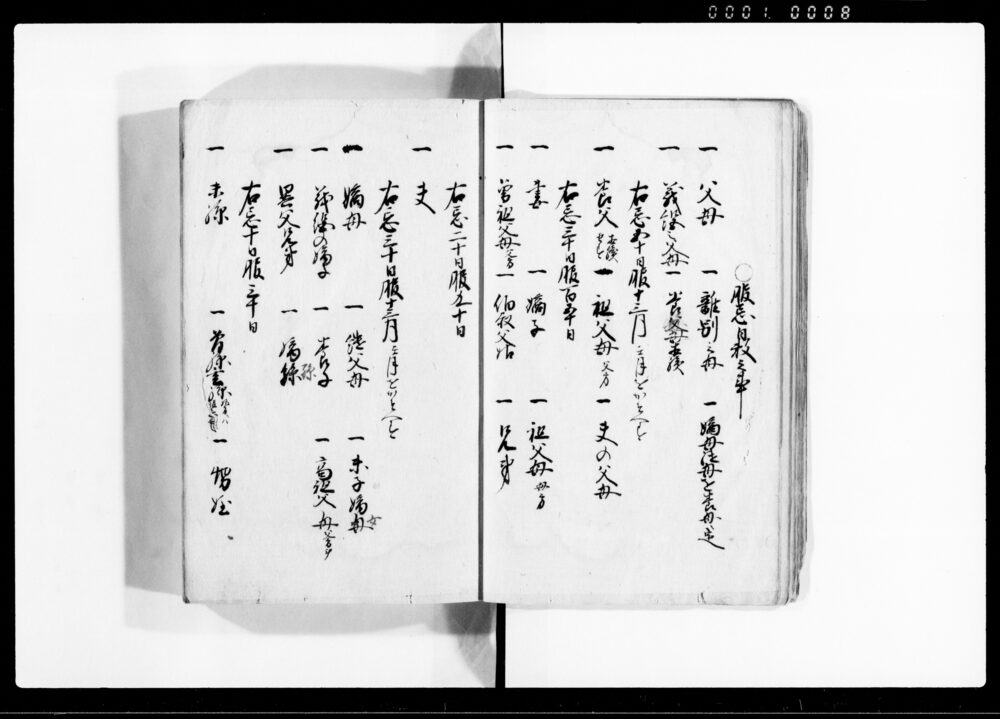 0001 0008
○服忌日数之事
一 父母 一 離別之母 一 嫡母継母を養母
一 義絶之父母 一 養父母
右忌五十日服十三月
一 養父 一 祖父母父方 一 夫の父母
右忌三十日服百五十日
一 妻 一 嫡子 一 祖父母母方
一 曽祖父母父方 一 伯叔父姑 一 兄弟
右忌二十日服九十日
一 夫
右忌三十日服十三月
一 嫡母 一 継父母 一 末子
一 義絶の嫡子 一 養子 一 高祖父母父方
一 異父兄弟 一 嫡孫
右忌十日服三十日
一 末孫 一 曽孫玄孫 一 甥姪